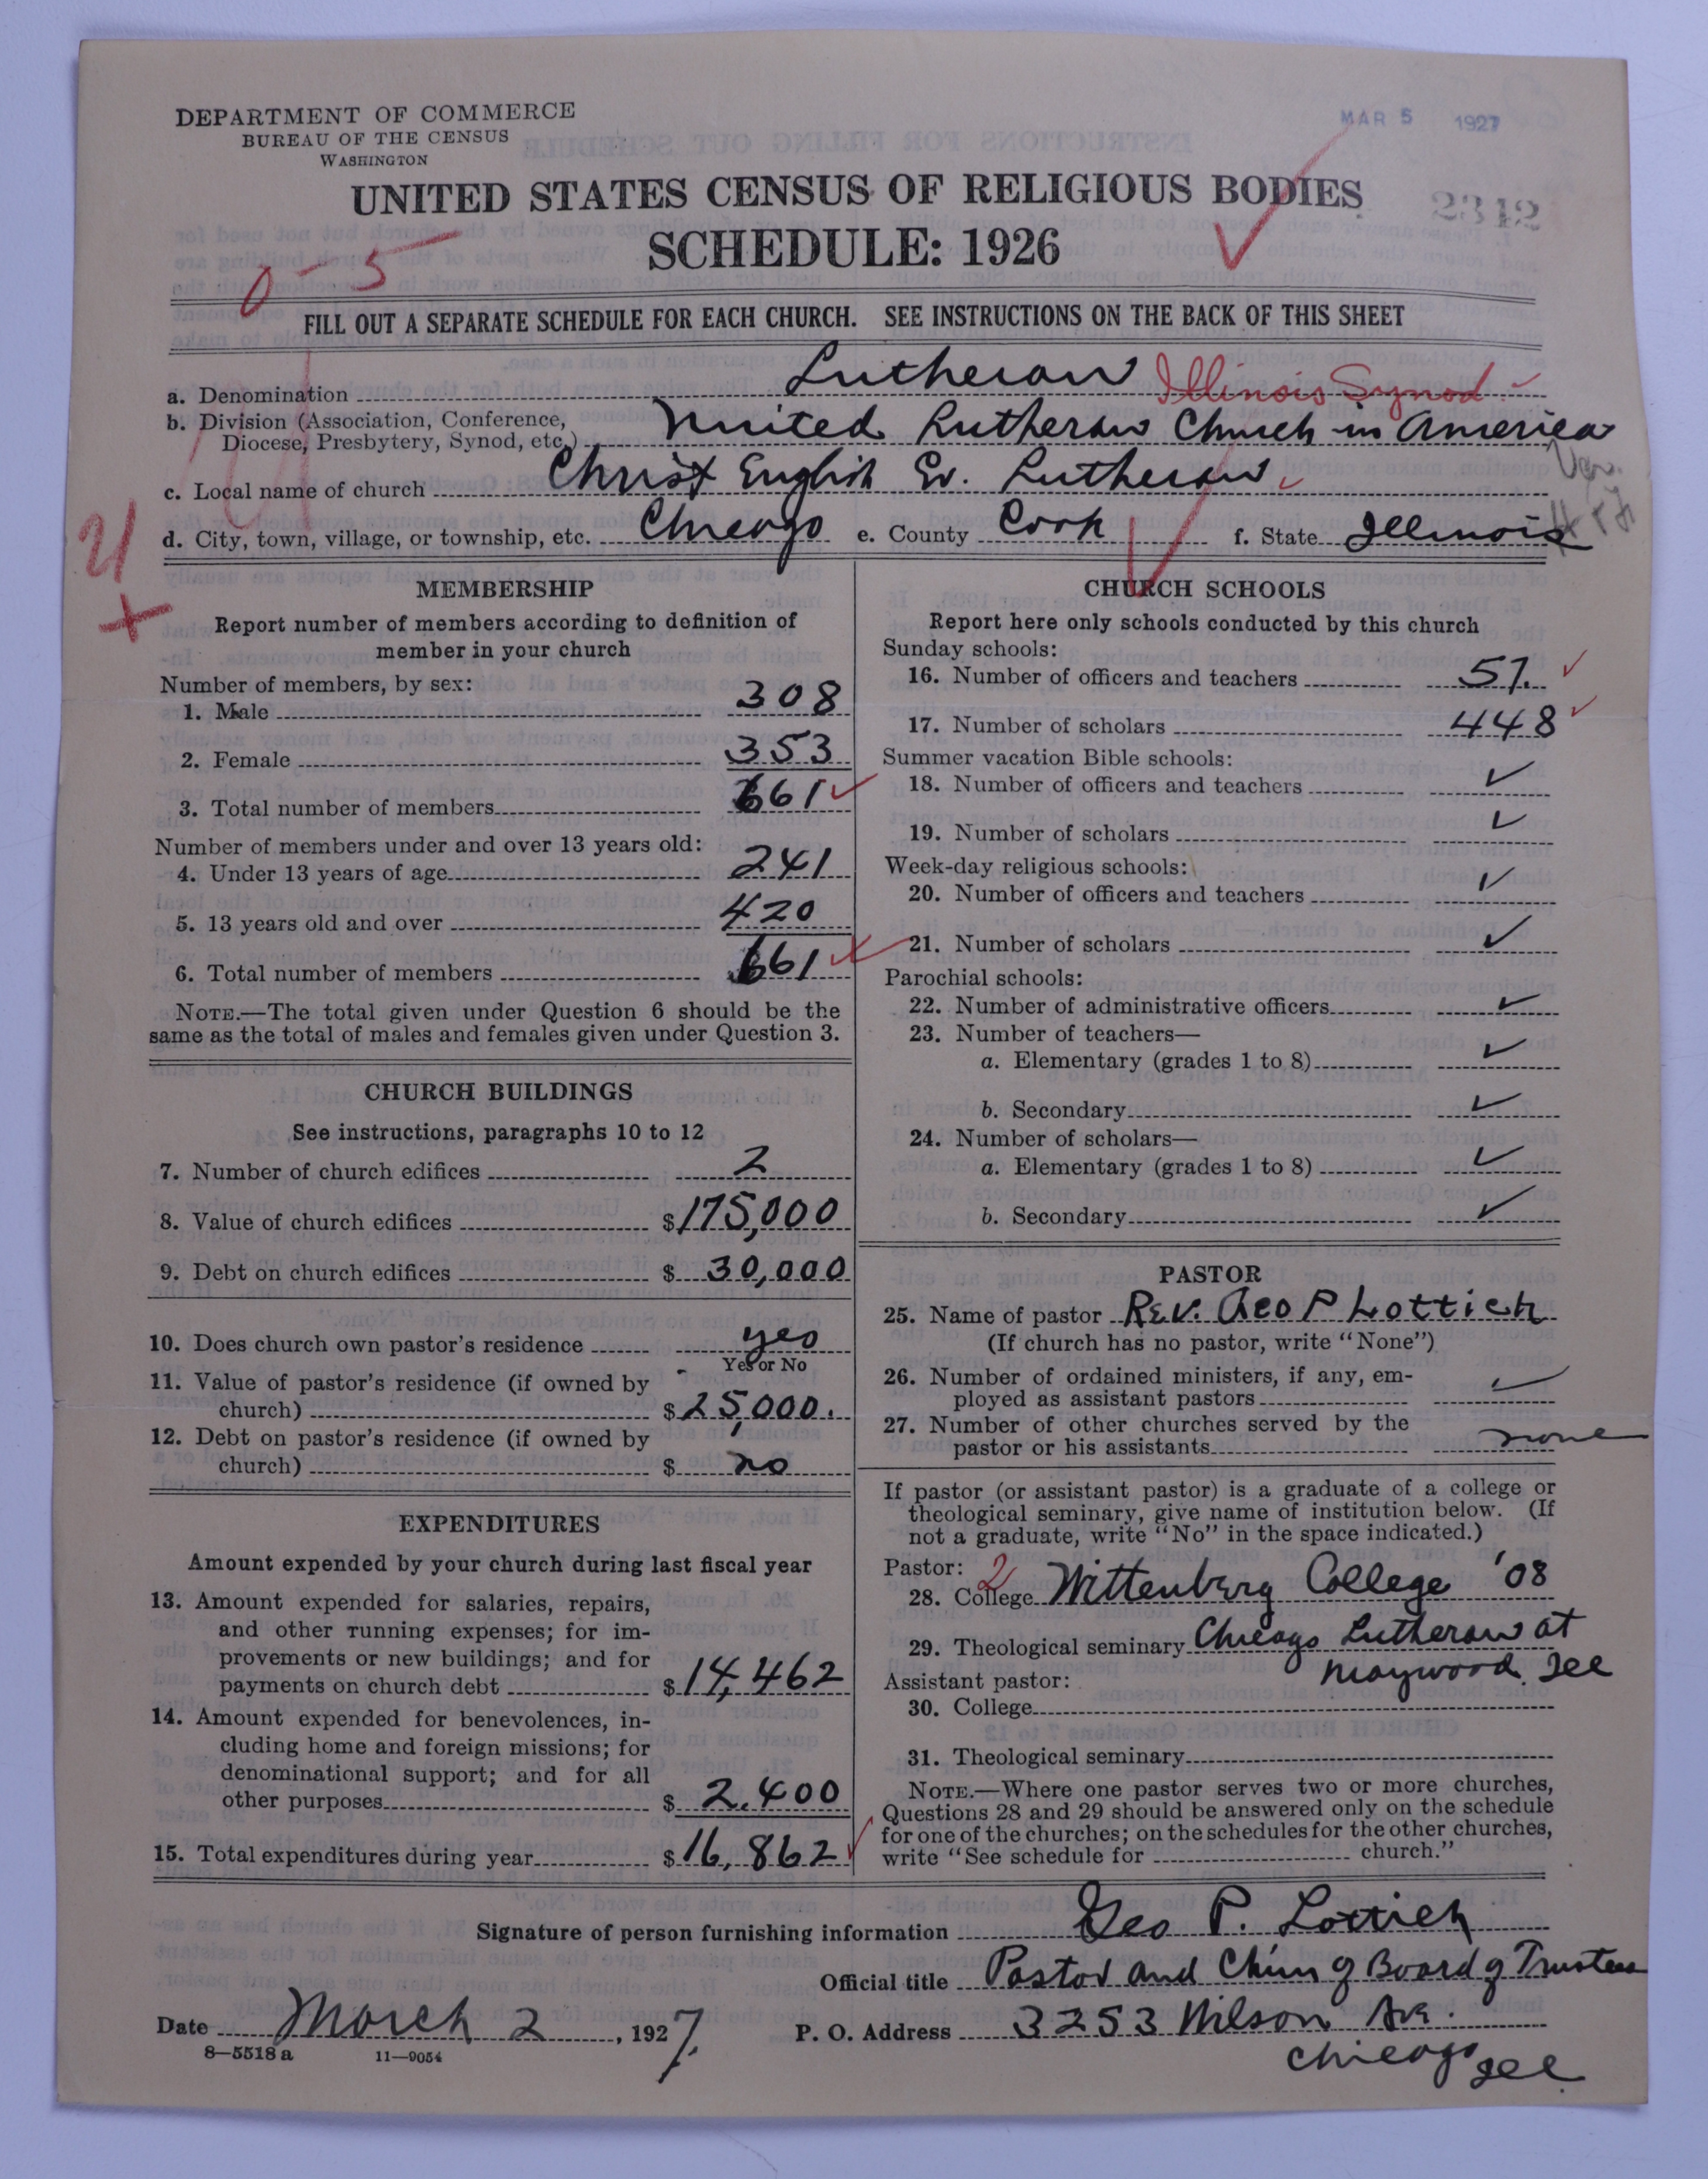 DEPARTMENT OF COMMERCE
BUREAU OF THE CENSUS
WASHINGTON
MAR 5 1927
UNITED STATES CENSUS OF RELIGIOUS BODIES
2342
SCHEDULE: 1926
0-5
FILL OUT A SEPARATE SCHEDULE FOR EACH CHURCH. SEE INSTRUCTIONS ON THE BACK OF THIS SHEET
a. Denomination Lutheran Illinois Synod
b. Division (Association, Conference,
Diocese, Presbytery, Synod, etc.) United Lutheran Church in America
c. Local name of church Christ English Ev. Lutheran
d. City, town, village, or township, etc. Chicago e. County Cook f. State Illinois
MEMBERSHIP
Report number of members according to definition of
member in your church
Number of members, by sex:
1. Male 308
2. Female 353
3. Total number of members 661
Number of members under and over 13 years old:
4. Under 13 years of age 241
5. 13 years old and over 420
6. Total number of members 661
NOTE.—The total given under Question 6 should be the
same as the total of males and females given under Question 3.
CHURCH BUILDINGS
See instructions, paragraphs 10 to 12
7. Number of church edifices 2
8. Value of church edifices $175,000
9. Debt on church edifices $ 30,000
10. Does church own pastor's residence yes
Yes or No
11. Value of pastor's residence (if owned by
church) $25,000.
12. Debt on pastor's residence (if owned by
church) $ no
EXPENDITURES
Amount expended by your church during last fiscal year
13. Amount expended for salaries, repairs,
and other running expenses; for im-
provements or new buildings; and for
payments on church debt $14,462
14. Amount expended for benevolences, in-
cluding home and foreign missions; for
denominational support; and for all
other purposes $ 2.400
15. Total expenditures during year $16,862
CHURCH SCHOOLS
Report here only schools conducted by this church
Sunday schools:
16. Number of officers and teachers 57.
17. Number of scholars 448
Summer vacation Bible schools:
18. Number of officers and teachers ✓
19. Number of scholars ✓
Week-day religious schools:
20. Number of officers and teachers ✓
21. Number of scholars ✓
Parochial schools:
22. Number of administrative officers ✓
23. Number of teachers—
a. Elementary (grades 1 to 8) ✓
b. Secondary ✓
24. Number of scholars—
a. Elementary (grades 1 to 8) ✓
b. Secondary ✓
PASTOR
25. Name of pastor Rev. Geo P Lottich
(If church has no pastor, write "None")
26. Number of ordained ministers, if any, em-
ployed as assistant pastors ✓
27. Number of other churches served by the
pastor or his assistants none
If pastor (or assistant pastor) is a graduate of a college or
theological seminary, give name of institution below. (If
not a graduate, write "No" in the space indicated.)
Pastor: 2
28. College Wittenberg College '08
29. Theological seminary Chicago Lutheran at
Maywood Ill
Assistant pastor:
30. College
31. Theological seminary
NOTE.—Where one pastor serves two or more churches,
Questions 28 and 29 should be answered only on the schedule
for one of the churches; on the schedules for the other churches,
write "See schedule for church."
Signature of person furnishing information Geo P. Lottich
Official title Pastor and Chmn of Board of Trustees
Date March 2, 1927. P. O. Address 3253 Wilson Av.
Chicago Ill
8—5518 a 11—9054